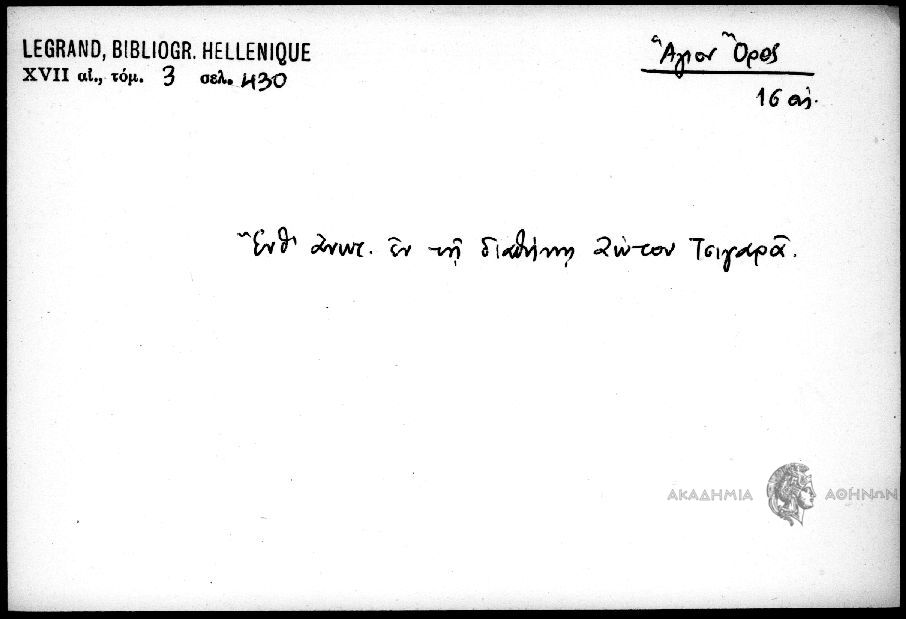 LEGRAND, BIBLIOGR. HELLENIQUE
XVII αἰ., τόμ. 3 σελ. 430
Ἅγιον Ὄρος
16 αἰ.
ἐν τῇ διαθήκῃ Ζώτου Τσιγαρᾶ.
ΑΚΑΔΗΜΙΑ ΑΘΗΝΩΝ